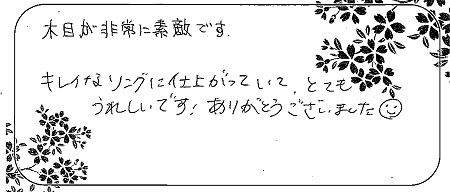 木目が非常に素敵です.
キレイなリングに仕上がっていて、とても
うれしいです! ありがとうございました☺